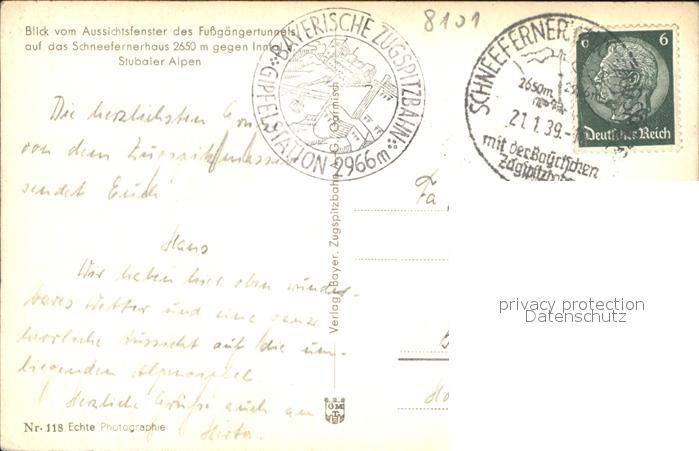 Blick vom Aussichtsfenster des Fußgängertunnels
auf das Schneefernerhaus 2650 m gegen Inntal
Stubaier Alpen
8101
BAYERISCHE ZUGSPITZBAHN
GIPFELSTATION 2966 m
SCHNEEFERNER
2650m
21.1.39.-
mit der Bayrischen
Zugspitzbahn
6
Deutsches Reich
Die herzlichsten Grüße
von dem Zugspitzmassiv
sendet Euch
Hans
Wir haben hier oben wunder-
bares Wetter und eine ganz
herrliche Aussicht auf die um-
liegenden Alpengipfel.
Herzliche Grüße auch an
Herta.
Verlag: Bayer. Zugspitzbahn A.G. Garmisch
Fa.
privacy protection
Datenschutz
Nr. 118 Echte Photographie